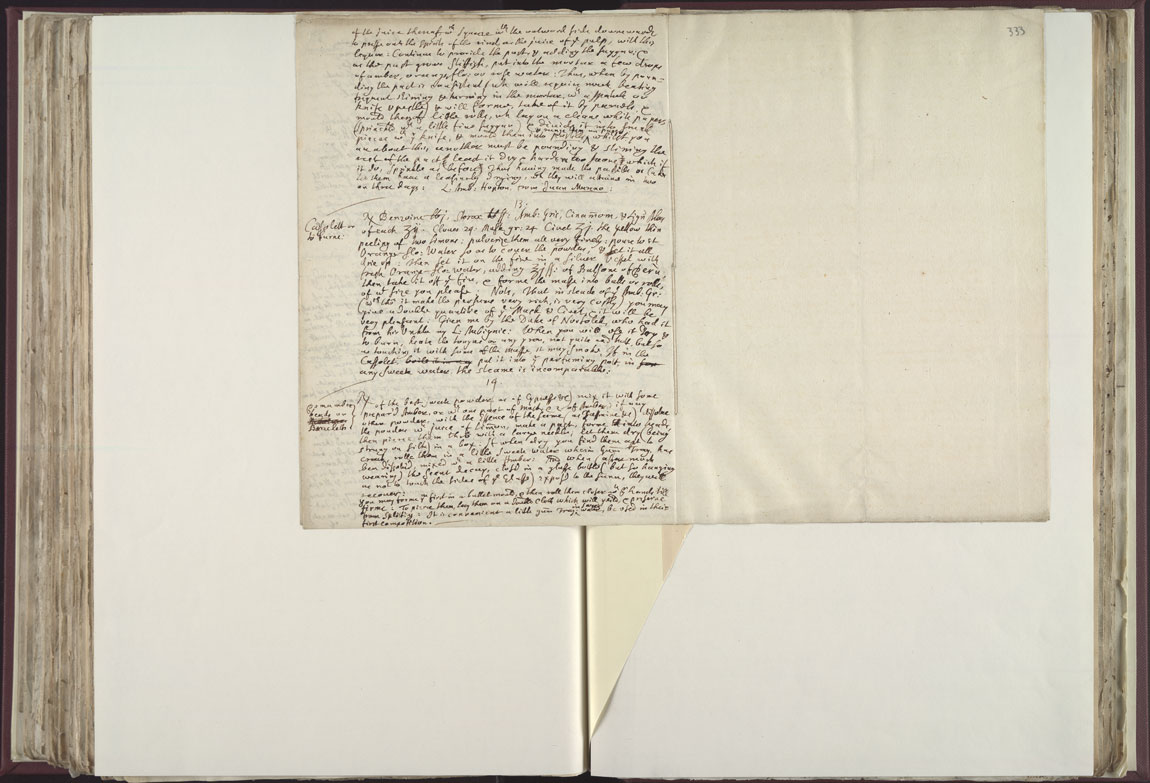 333
of the juice thereof & squeeze wth the outward side downewards
to presse out the spirits of the rind, as the juice of ye pulp, with this
liquor: Continue to pound the past, & adding the suggar, &
as the past grows stiffish, put into the mortar a few drops
of amber, orange-flo: or rose water: Thus, when by poun-
ding the past is consistent (wh will require much beating
frequent stirring & turning in the mortar, wth a spatule or
knife & pestle) & will forme, take of it by parcels &
mould them of little rolls, wh lay on a cleane white papers
(sprinckled wth a little fine suggar) & divide it into small
pieces wth ye knife, & mould them into pastills, whilst you
are about this, another must be pounding & stirring the
rest of the past
it do, sprinkle as before: Thus having made the pastills or Cakes
let them have a leasurely drying, wh they will attaine in two
or three days: L. Amb: Hopton, from Juan Munno.
13.
Cassolett
to burne.
℞ Benzoine , Storax , Amb: Gris, Cinamom, & Lign Aloes
of each Cloves 29. Musk gr: 24 Civet the yellow thin
peeling of two limons: pulverize them all very finely: poure to it
Orange-flo: Water so as to cover the powder, & let it all
drie up: then set it on the fire in a silver Vessel with
fresh Orange-flo: water, adding of Balsome of Peru,
then take it off ye fire, & forme the masse into balls or rolls,
of wt size you please: Note, That in steade of ye Amb: Gr:
(wch tho it make the perfume very rich, is very costly) you may
give a double quantitie of ye Musk & Civet, & it will be
very pleasant: Given me by the Duke of Norfolck, who had it
from his Unkle my L: Aubignie: When you will use it dry &
to burn, heate the tongues or any yron, not quite red hott, but so
as touching it with some of the masse, it may smoke. If in the
Cassolet, put it into ye perfuming pott, in
any sweete water, the steame is incomparable.
14.
Pomander
beads or
Bracelets
℞ of the best sweete powder as of Cypresse) mix it with some
prepar'd Amber, or wth one part of musk, & 2 of Amber, if any
other powder, with the essence of the same, as Jassmine &c) dissolve
the powder wth juice of limon, make a past, forme it into beads,
then pierce them thro with a large needle, let them dry (being
strung on silk) in a box: If when dry you find them apt to
crack, rolle them in a little sweete water wherein Gum Drag: has
ben dissolv'd mixed wth a little Amber: When (after much
wearing) the scent decay, clos'd in a glasse bottle (but so hanging
as not to touch the sides of ye Glasse) expos'd to the sunn, they will
recover:
you may forme ye first in a bullet mould, & then roll them closer wth ye hands till
firme: To pierce them, lay them on a double cloth which will yeild, & preserve
from splitting: It is convenient a little gum Drag: water, be used in their
first composition.